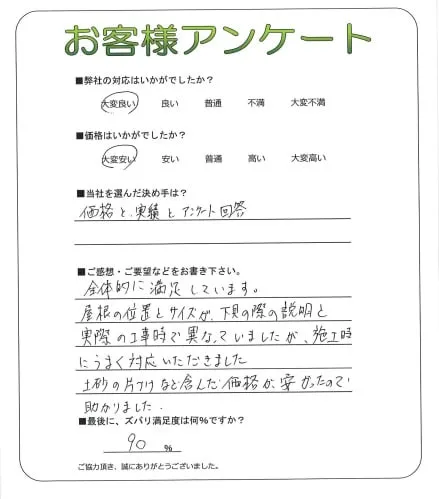 お客様アンケート
■弊社の対応はいかがでしたか？
大変良い 良い 普通 不満 大変不満
■価格はいかがでしたか？
大変安い 安い 普通 高い 大変高い
■当社を選んだ決め手は？
価格と、実績とアンケート回答
■ご感想・ご要望などをお書き下さい。
全体的に満足しています。
屋根の位置とサイズが、下見の際の説明と
実際の工事時で異なっていましたが、施工時
にうまく対応いただきました
土砂の片づけなど含んだ価格が安かったので
助かりました.
■最後に、ズバリ満足度は何%ですか？
90 %
ご協力頂き、誠にありがとうございました。